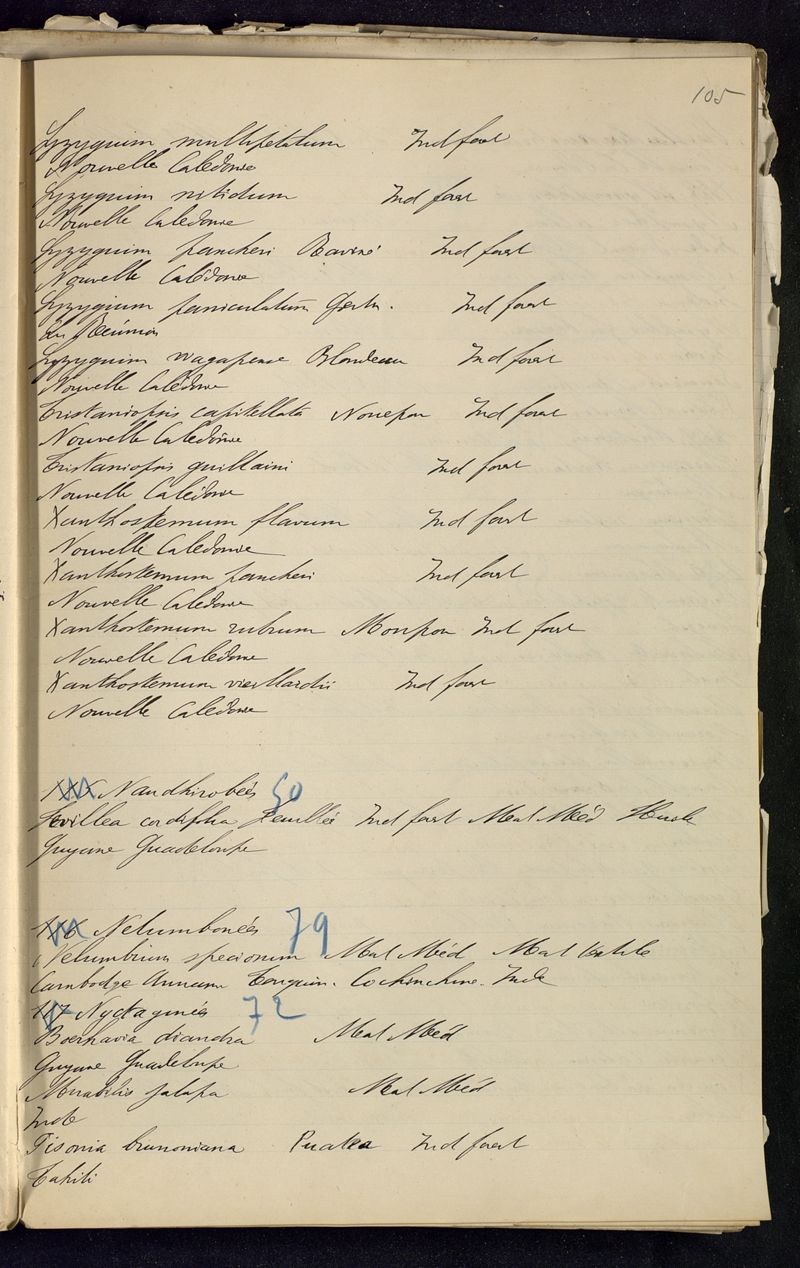 105
Syzygium multipetalum Ind forst
Nouvelle Calédonie
Syzygium nitidum Ind forst
Nouvelle Calédonie
Syzygium pancheri Baviné Ind forst
Nouvelle Calédonie
Syzygium paniculatum Gertn. Ind forst
La Réunion
Syzygium wagapense Blondeau Ind forst
Nouvelle Calédonie
Tristaniopsis capitellata Nonepou Ind forst
Nouvelle Calédonie
Tristaniopsis guillaini Ind forst
Nouvelle Calédonie
Xanthostemum flavum Ind forst
Nouvelle Calédonie
Xanthostemum pancheri Ind forst
Nouvelle Calédonie
Xanthostemum rubrum Moupou Ind forst
Nouvelle Calédonie
Xanthostemum vieillardii Ind forst
Nouvelle Calédonie
Nandhirobées 50
Fevillea cordifolia Feuillée Ind forst Mat Méd Huile
Guyane Guadeloupe
Nelumbonées 79
Nelumbium speciosum Mat Méd Mat textile
Cambodge Annam Tonquin. Cochinchine. Inde
Nyctaginées 72
Boerhavia diandra Mat Méd
Guyane Guadeloupe
Mirabilis jalapa Mat Méd
Inde
Pisonia brunoniana Puatea Ind forst
Tahiti